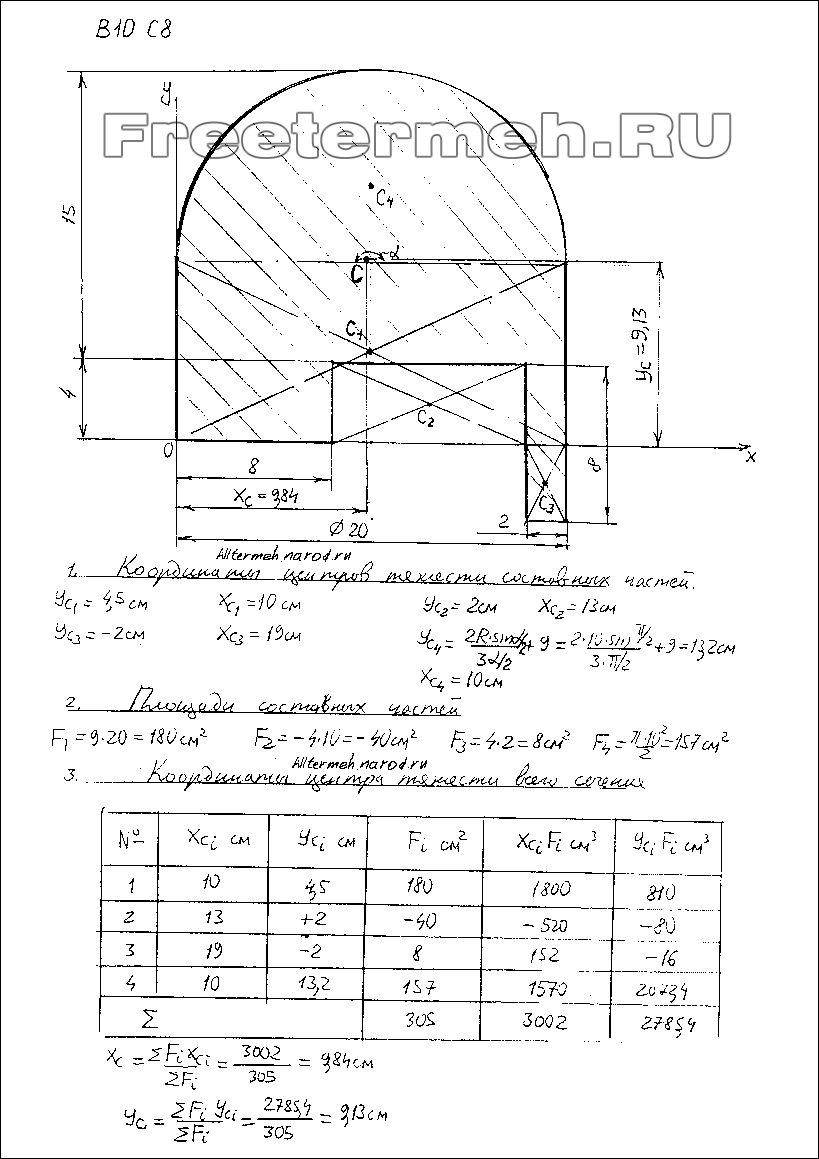 В10 С8
Freetermeh.RU
y
15
C4
C
α
C1
yc = 9,13
4
C2
0
x
8
8
Xc = 9,84
C3
2
Ø 20
Alltermeh.narod.ru
1. Координаты центров тяжести составных частей.
yc1 = 4,5 см Xc1 = 10 см yc2 = 2 см Xc2 = 13 см
yc3 = -2 см Xc3 = 19 см yc4 = 2R·sinα/2 / 3α/2 + 9 = 2·10·sin π/2 / 3·π/2 + 9 = 13,2 см
Xc4 = 10 см
2. Площади составных частей
F1 = 9·20 = 180 см² F2 = -4·10 = -40 см² F3 = 4·2 = 8 см² F4 = π·10²/2 = 157 см²
Alltermeh.narod.ru
3. Координаты центра тяжести всего сечения
№ Xci см yci см Fi см² XciFi см³ yciFi см³
1 10 4,5 180 1800 810
2 13 +2 -40 -520 -80
3 19 -2 8 152 -16
4 10 13,2 157 1570 2073,4
Σ 305 3002 2785,4
Xc = ΣFiXci / ΣFi = 3002 / 305 = 9,84 см
yc = ΣFi yci / ΣFi = 2785,4 / 305 = 9,13 см